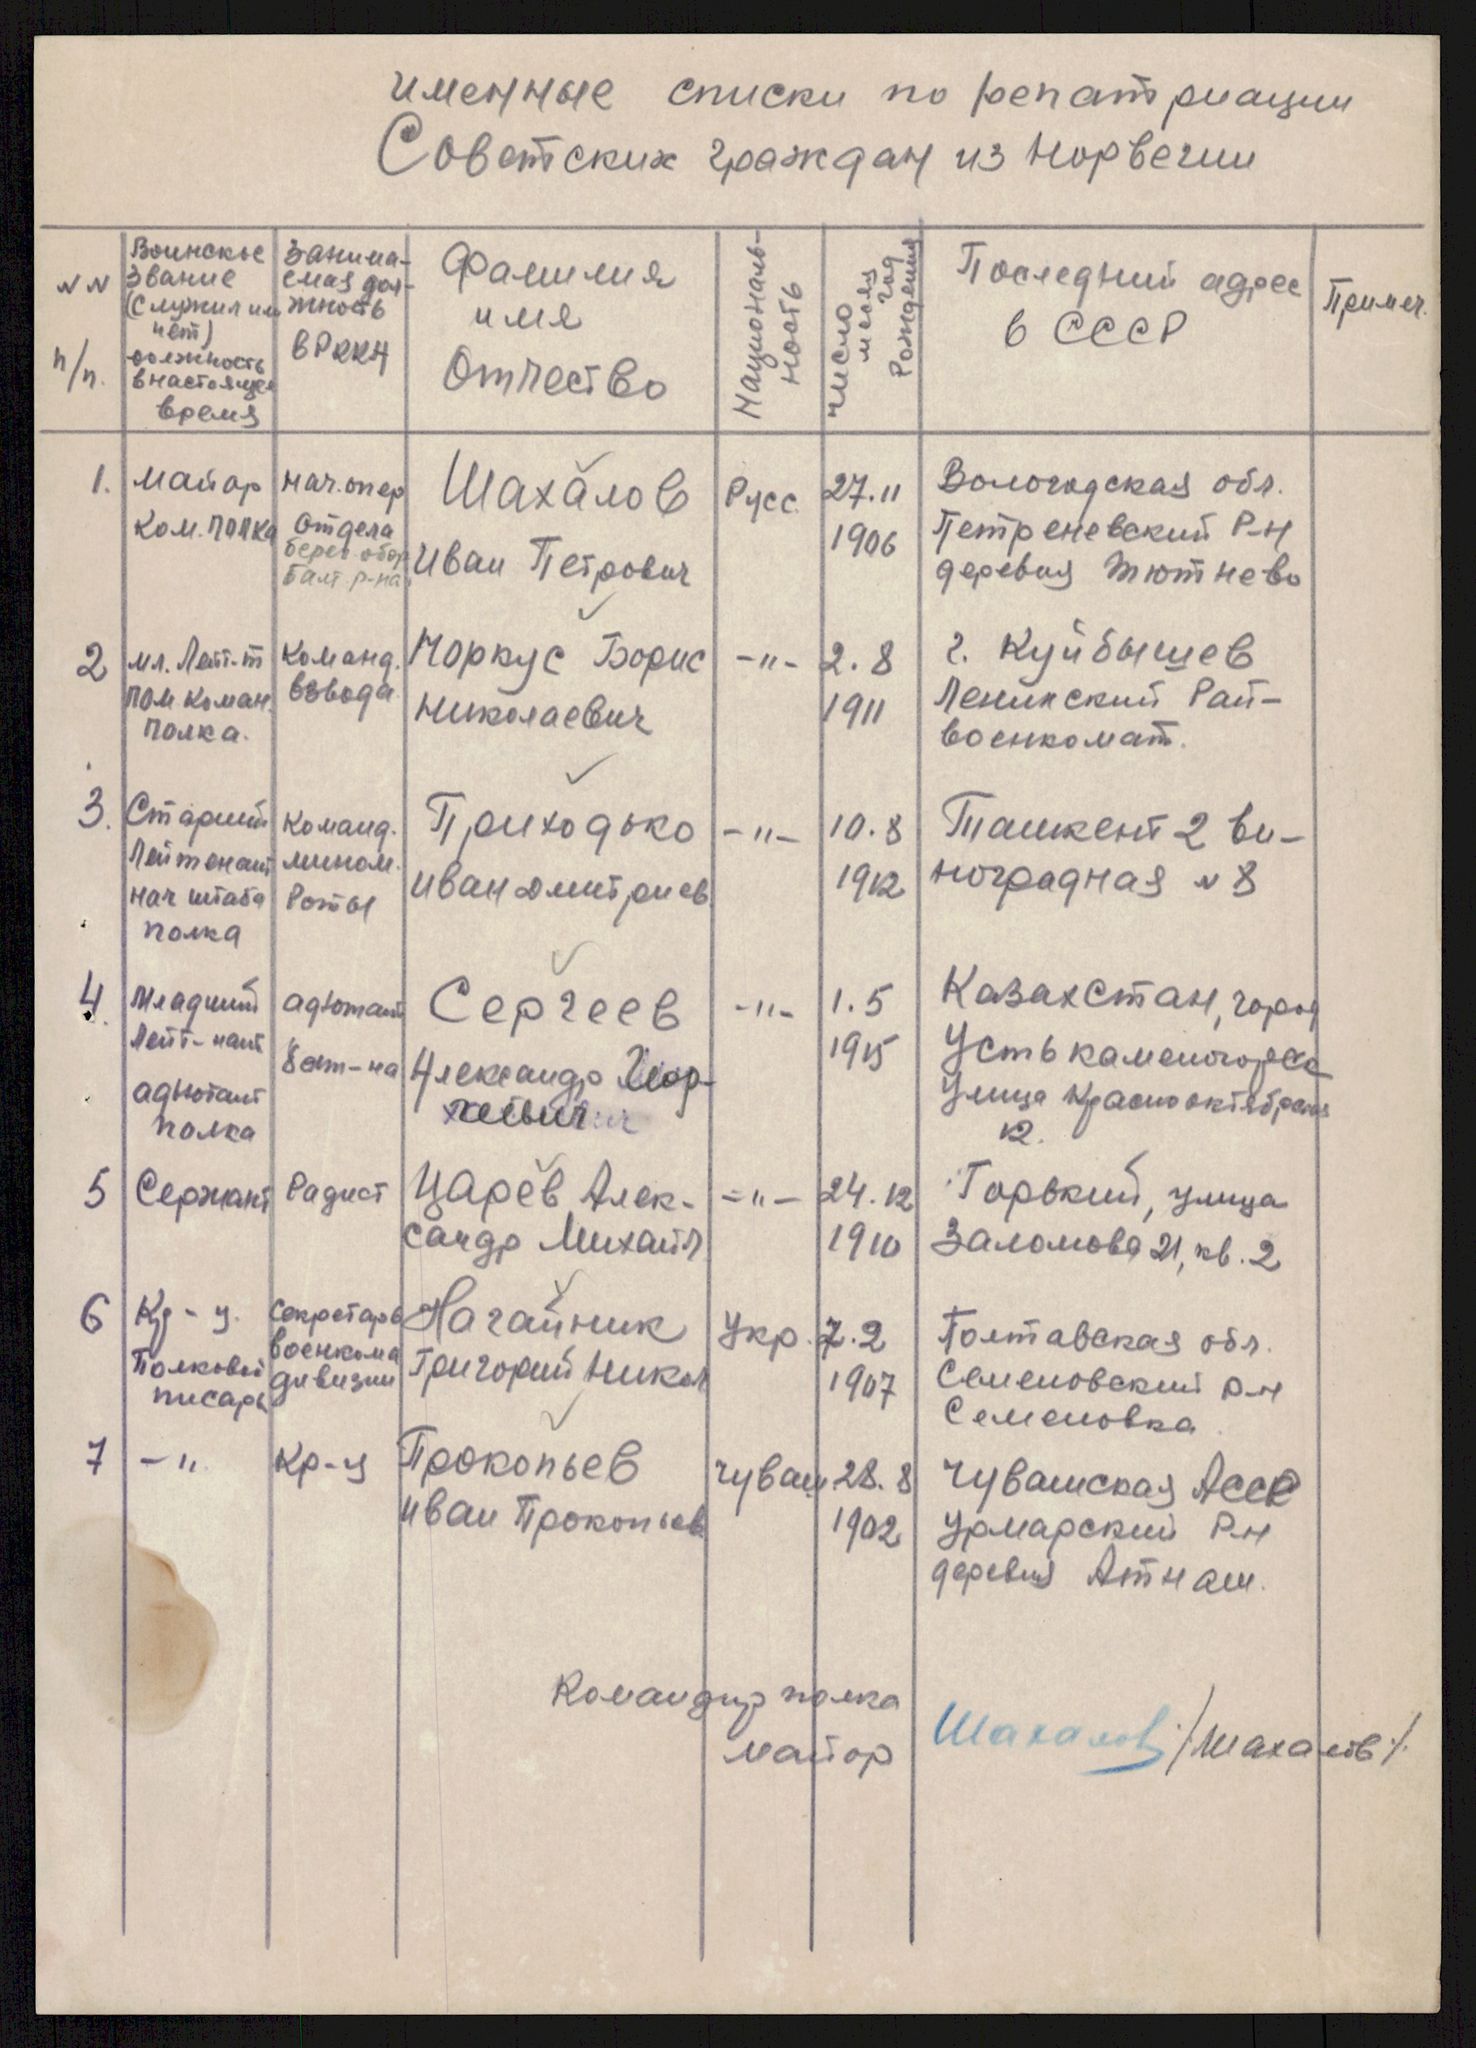 именные списки по репатриации
Советских граждан из Норвегии
№№ п/п.
Воинское звание (служил или нет) должность в настоящее время
Занимаемая должность в РККА
Фамилия имя Отчество
Национальность
число месяц год Рождения
Последний адрес в СССР
Примеч.
1. майор нач. опер Шахалов Русс. 27.11 Вологодская обл.
ком. полка отдела Иван Петрович 1906 Петреневский Р-н
берег. обор. деревия Тютнево
Балт. р-на
2 мл. Лейт-т команд. Моркус Борис -"- 2.8 г. Куйбышев
пом коман. взвода Николаевич 1911 Ленинский Рай-
полка. военкомат.
3. Старший команд. Приходько -"- 10.8 Ташкент 2 ви-
Лейтенант мином. Иван Дмитриев. 1912 ноградная №8
нач штаба Роты
полка
4. Младший адютант Сергеев -"- 1.5 Казахстан, город
Лейт-нант бат-на Александр Геор- 1915 Усть каменогорск
адютант гиевич улица Краснооктябрская
полка 12.
5 Сержант Радист Царёв Алек- -"- 24.12 Горький, улица
сандр Михайл 1910 Заломова 21, кв. 2
6 Кр-ц. секретарь Нагайник Укр. 7.2 Полтавская обл.
Полковой военкома Григорий Никол 1907 Семеновский р-н
писарь дивизии Семеновка
7 -" Кр-ц Прокопьев Чуваш 28.8 Чувашская АССР
Иван Прокопьев 1902 Урмарский Р-н
деревия Атнаш.
Командир полка
майор Шахалов /Шахалов/.